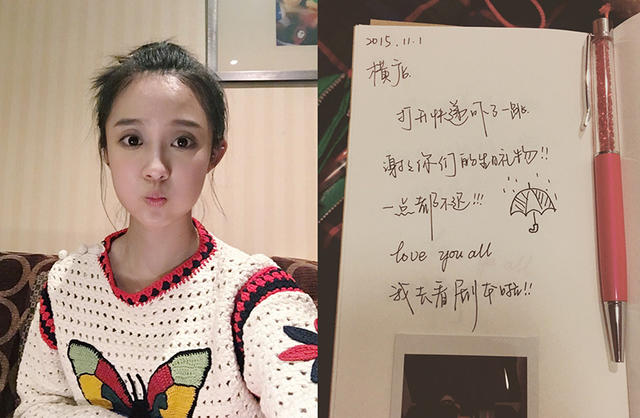 2015.11.1
横店
打开快递吓了一跳
谢谢你们的生日礼物!!
一点都不迟!!!
love you all
我去看剧本啦!!